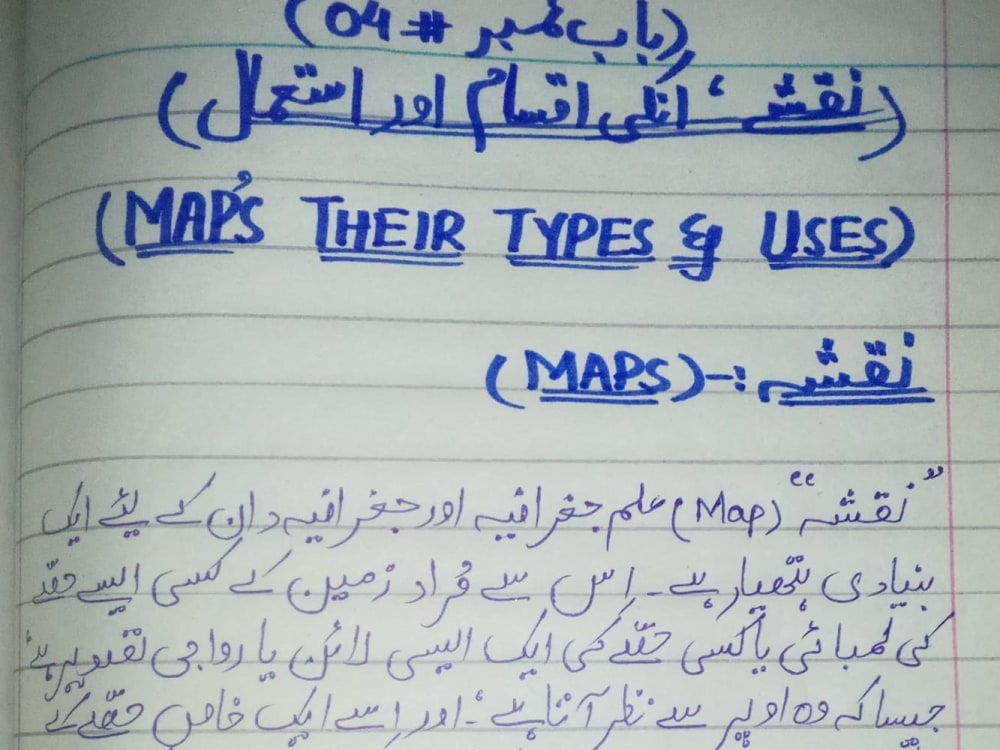 (باب نمبر # 04)
(نقشے، انکی اقسام اور استعمال)
(MAP'S THEIR TYPES & USES)
نقشہ :- (MAPS)
”نقشہ“ (Map) علم جغرافیہ اور جغرافیہ دان کے لئے ایک
بنیادی ہتھیار ہے۔ اِس سے مُراد زمین کے کسی ایسے حصّے
کی لمبائی یا کسی حصّے کی ایک ایسی لائن یا رواجی تصویر ہے
جیسا کہ وہ اوپر سے نظر آتا ہے،۔ اور اِسے ایک خاص حصّے کے